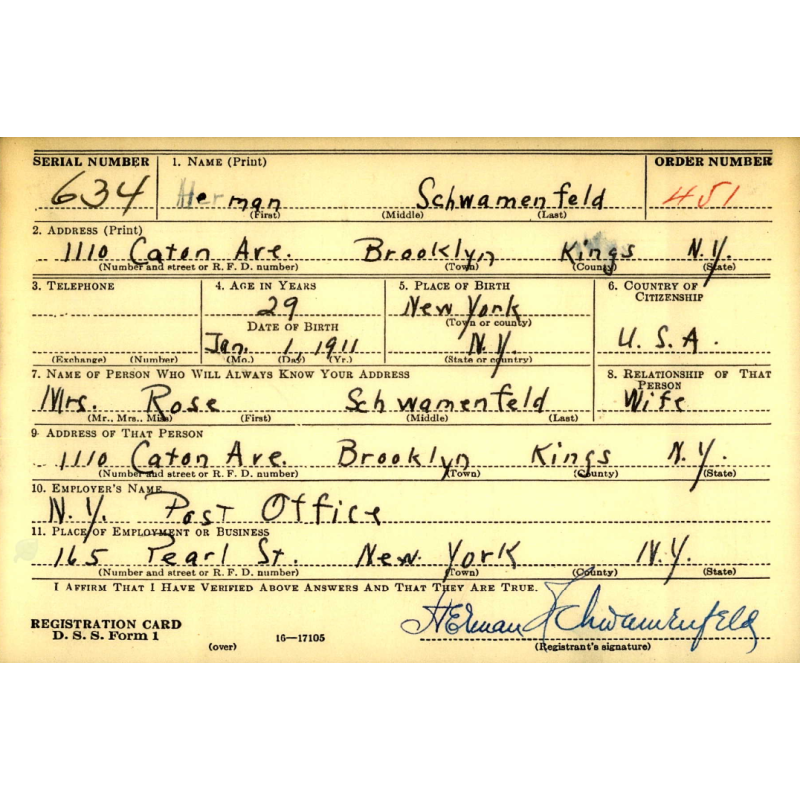 SERIAL NUMBER 1. NAME (Print) ORDER NUMBER
634 Herman Schwamenfeld 451
(First) (Middle) (Last)
2. ADDRESS (Print)
1110 Caton Ave. Brooklyn Kings N.Y.
(Number and street or R. F. D. number) (Town) (County) (State)
3. TELEPHONE 4. AGE IN YEARS 5. PLACE OF BIRTH 6. COUNTRY OF CITIZENSHIP
29 New York
(Town or county)
DATE OF BIRTH
Jan. 1, 1911 N.Y. U. S. A.
(Exchange) (Number) (Mo.) (Day) (Yr.) (State or country)
7. NAME OF PERSON WHO WILL ALWAYS KNOW YOUR ADDRESS 8. RELATIONSHIP OF THAT PERSON
Mrs. Rose Schwamenfeld Wife
(Mr., Mrs., Miss) (First) (Middle) (Last)
9. ADDRESS OF THAT PERSON
1110 Caton Ave. Brooklyn Kings N.Y.
(Number and street or R. F. D. number) (Town) (County) (State)
10. EMPLOYER'S NAME
N.Y. Post Office
11. PLACE OF EMPLOYMENT OR BUSINESS
165 Pearl St. New York N.Y.
(Number and street or R. F. D. number) (Town) (County) (State)
I AFFIRM THAT I HAVE VERIFIED ABOVE ANSWERS AND THAT THEY ARE TRUE.
REGISTRATION CARD
D. S. S. Form 1 (over) 16—17105 Herman Schwamenfeld
(Registrant's signature)